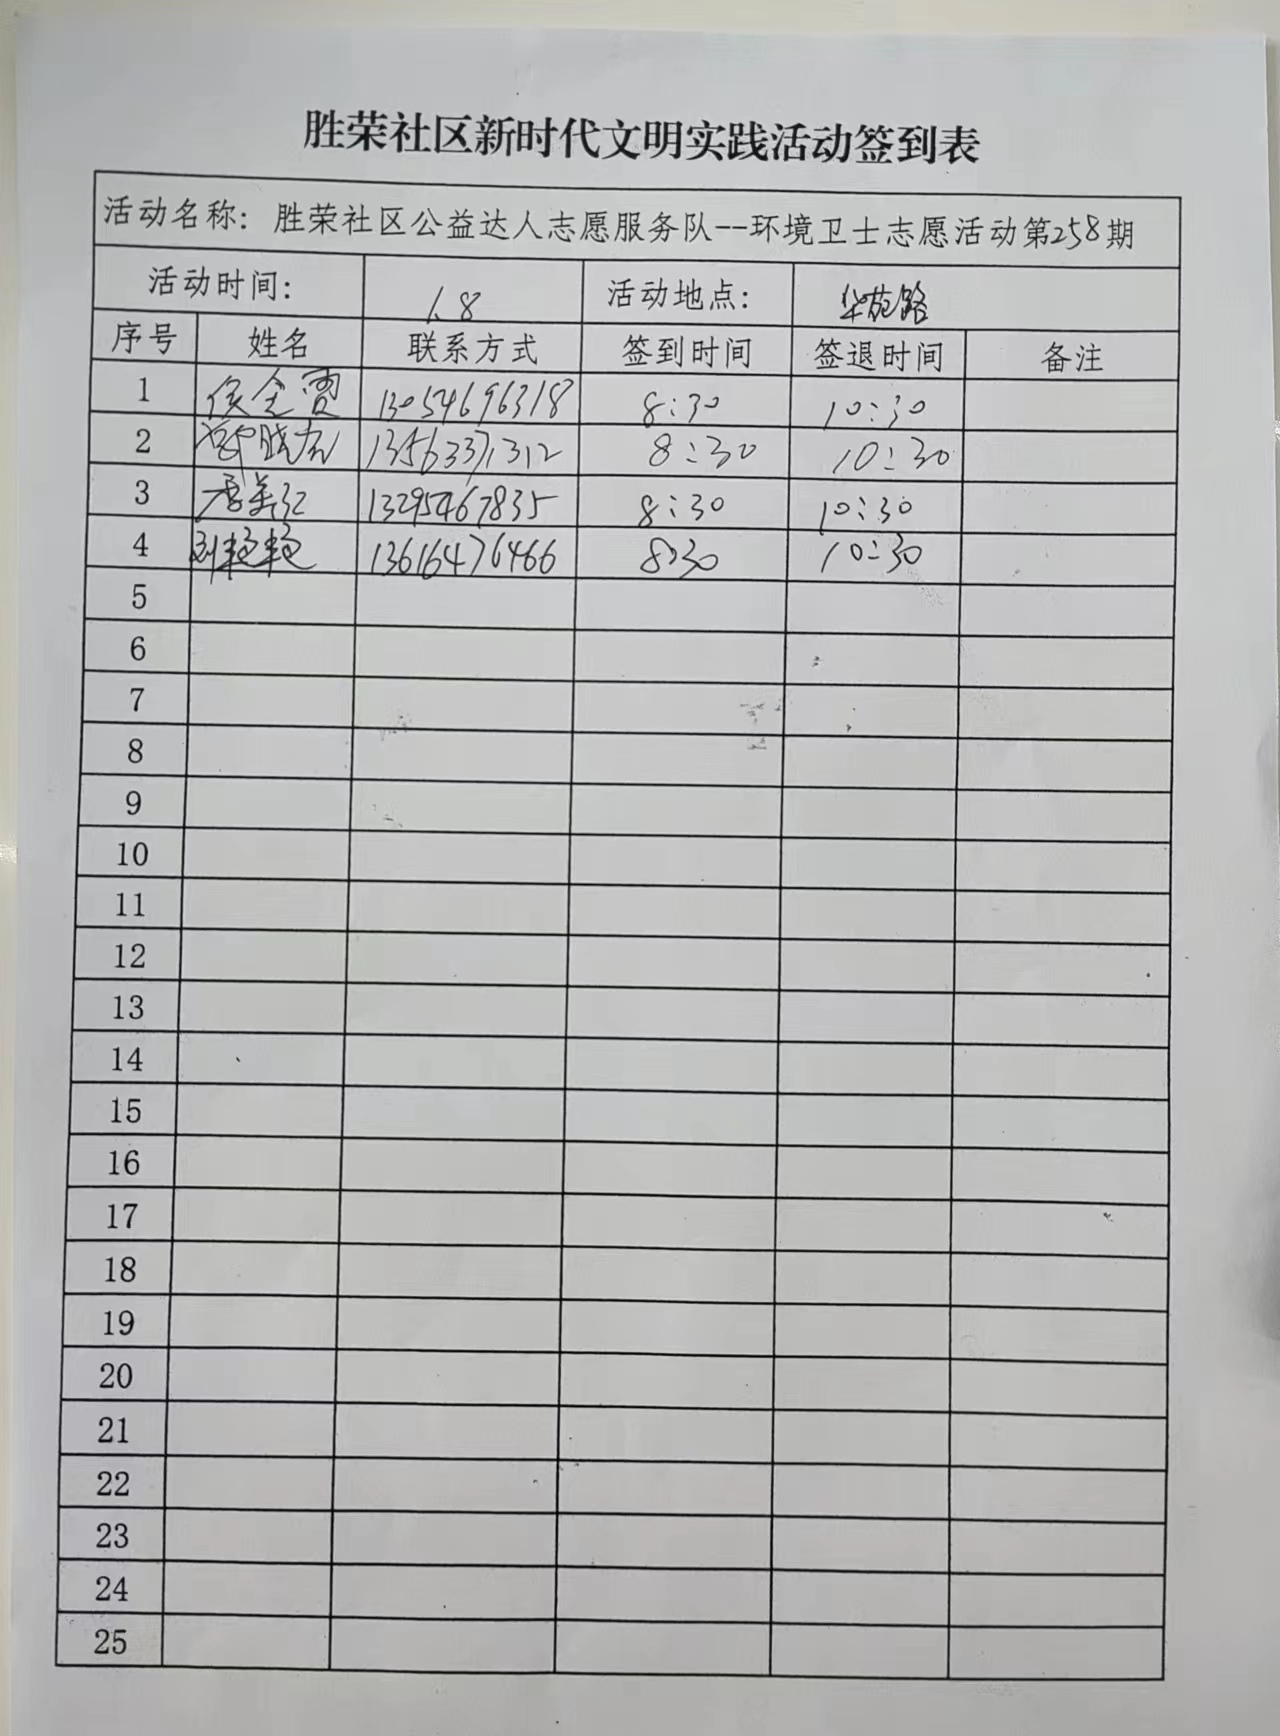 胜荣社区新时代文明实践活动签到表
活动名称：胜荣社区公益达人志愿服务队--环境卫士志愿活动第258期
活动时间： 1.8 活动地点： 华苑路
序号 姓名 联系方式 签到时间 签退时间 备注
1 侯全霄 13054696318 8:30 10:30
2 13563371312 8:30 10:30
3 李美红 13295467835 8:30 10:30
4 刘艳艳 13616476466 8:30 10:30
5
6
7
8
9
10
11
12
13
14
15
16
17
18
19
20
21
22
23
24
25